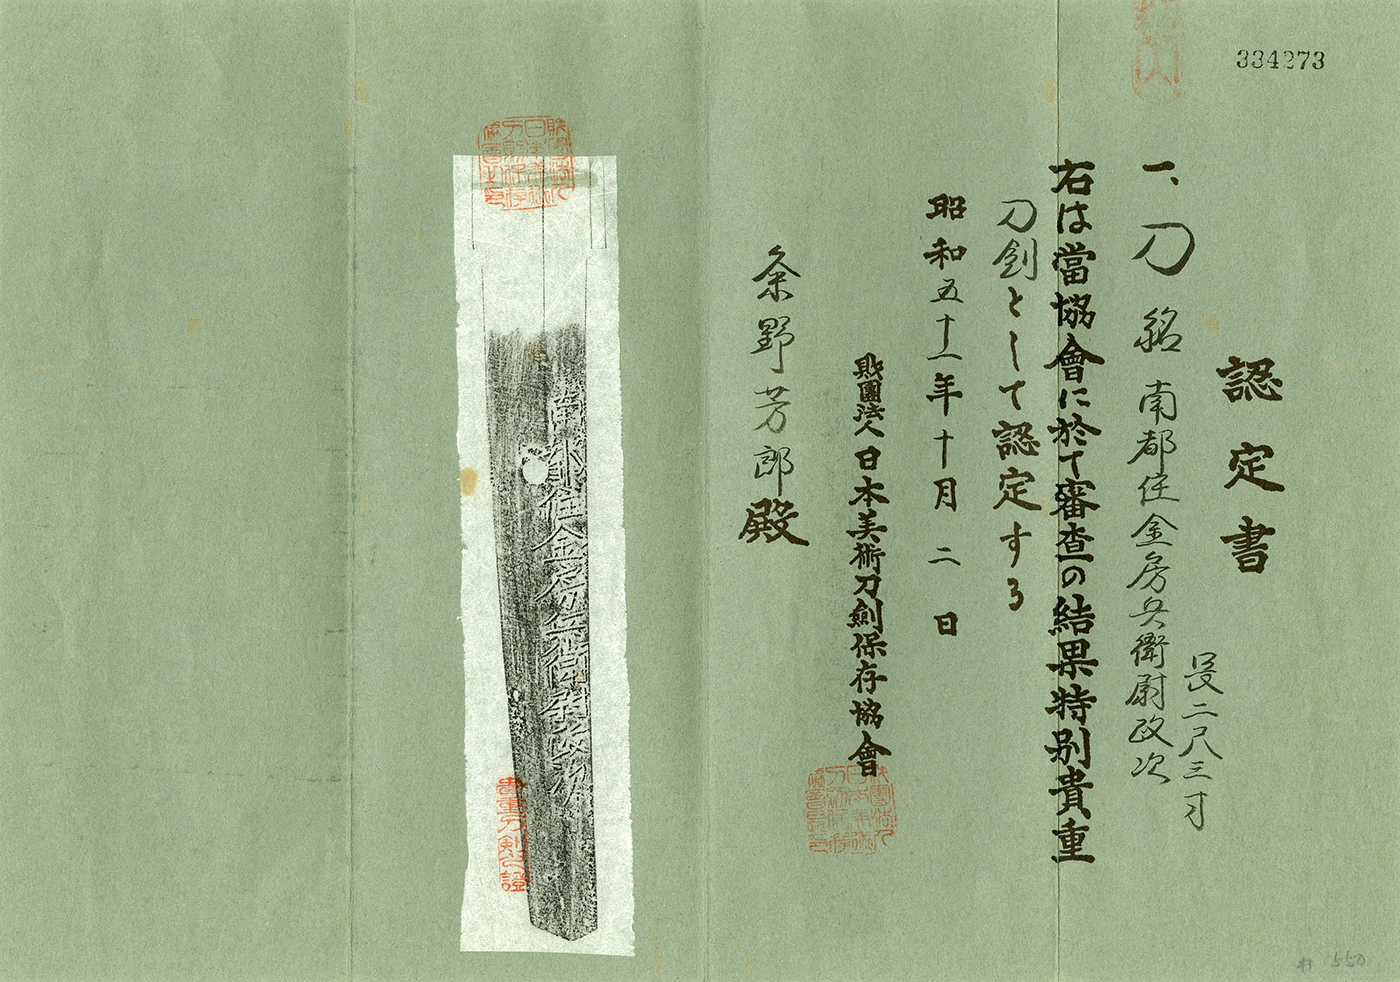 334273
認定書
一、刀 銘 南都住金房兵衛尉政次
長二尺三寸
右は當協會に於て審査の結果特別貴重
刀劍として認定する
昭和五十一年十月二日
財團法人日本美術刀劍保存協會
余野芳郎殿
南都住金房兵衛尉政次
貴重刀剣之證
# 550